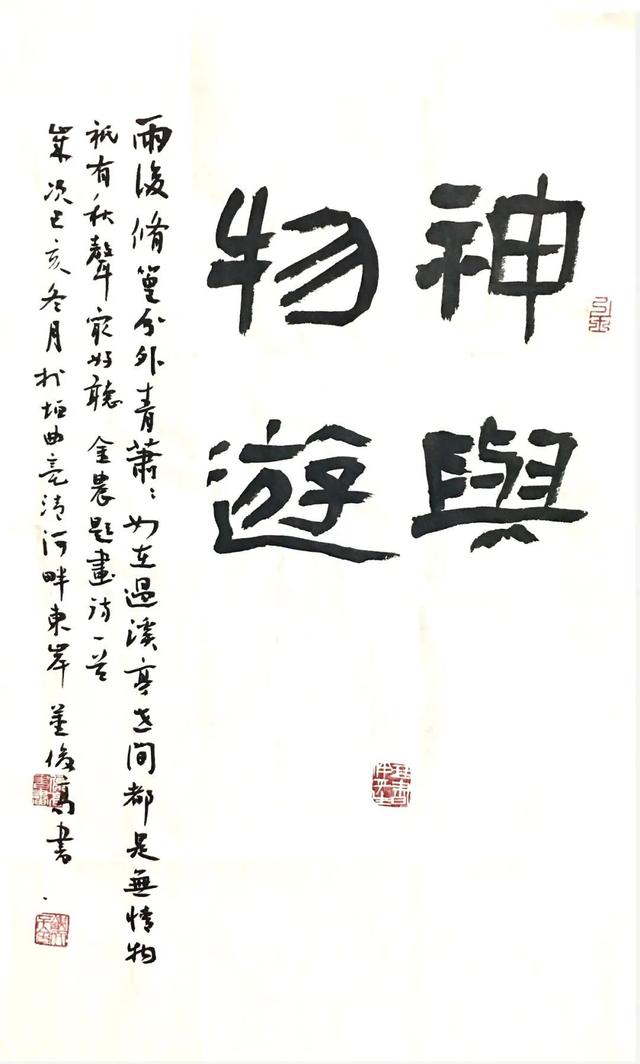 神與
物遊
雨後脩篁分外青蕭〻如在過溪亭世間都是無情物
祇有秋聲最好聽 金農題畫詩一首
歲次己亥冬月於垣曲亳清河畔東岸 董俊高書